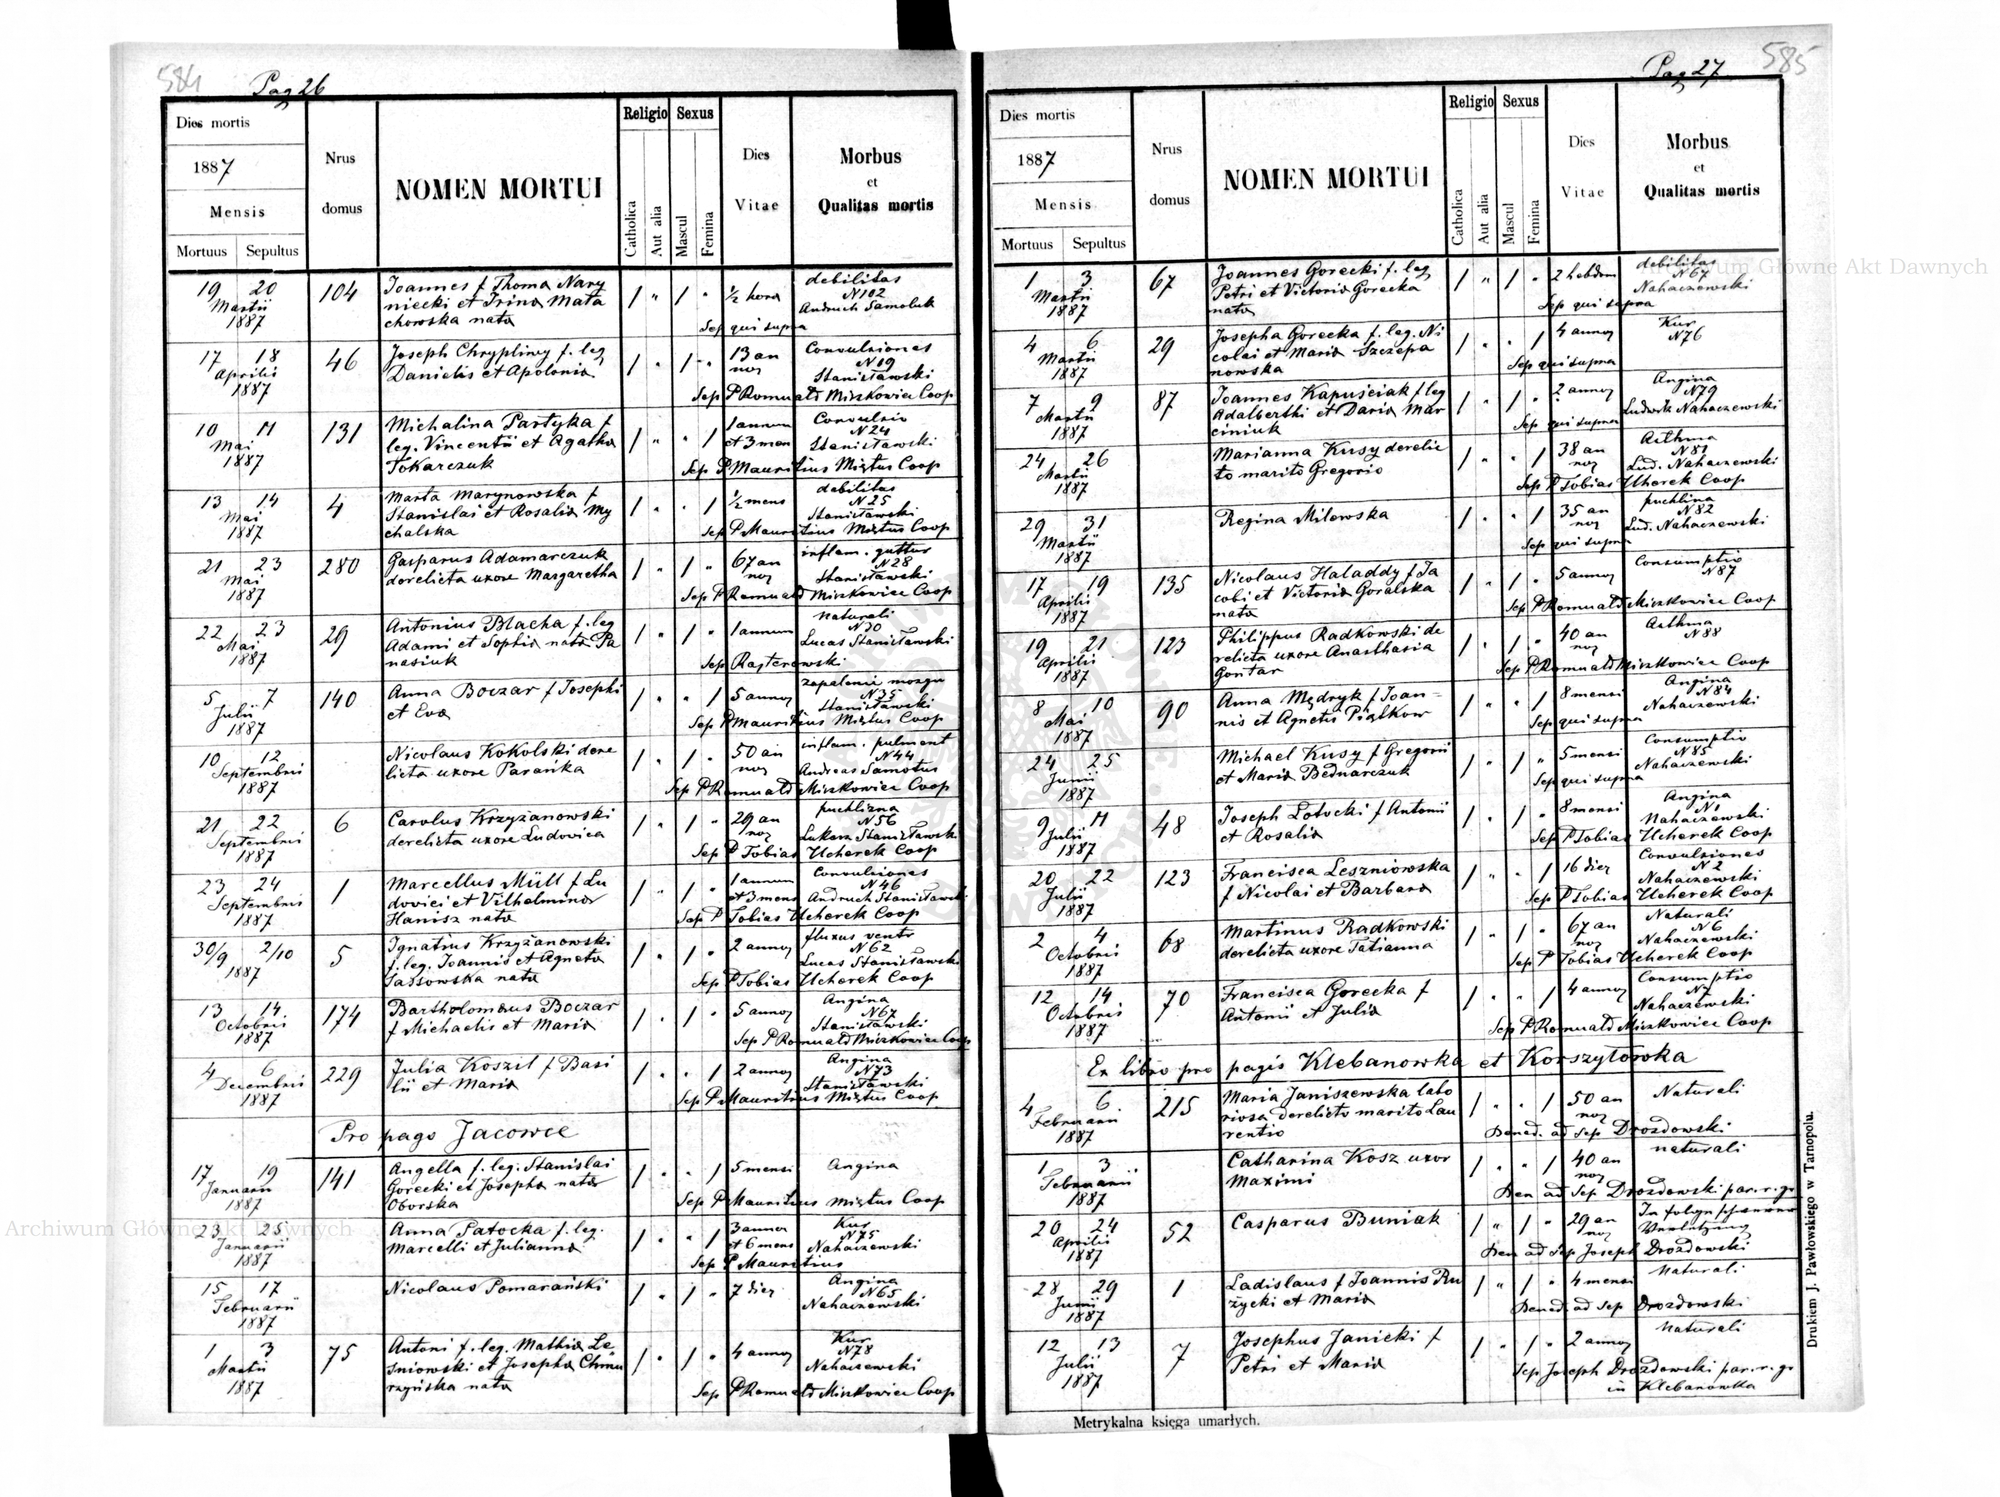 584
Pag 26
Dies mortis
1887
Mensis
Mortuus Sepultus
Nrus
domus
NOMEN MORTUI
Religio
Catholica
Aut alia
Sexus
Mascul
Femina
Dies
Vitae
Morbus
et
Qualitas mortis
19 20
Martii
1887
104
Joannes f Thoma Nary
niecki et Irina Mata
chowska nata
1 " 1 "
½ hora
debilitas
N102
Andruch Samoluk
Sep qui supra
17 18
Aprilis
1887
46
Joseph Chrypliwy f. leg
Danielis et Apolonia
1 " 1 "
13 an
nos
Convulsiones
N19
Stanisławski
Sep P Romuald Miszkowicz Coop
10 11
Mai
1887
131
Michalina Partyka f
leg. Vincentii et Agatha
Tokarczuk
1 " " 1
1 annum
et 3 men
Convulsio
N24
Stanisławski
Sep P Mauritius Mixtus Coop
13 14
Mai
1887
4
Marta Marynowska f
Stanislai et Rosalia My
chalska
1 " " 1
½ mens
debilitas
N25
Stanisławski
Sep P Mauritius Mixtus Coop
21 23
Mai
1887
280
Gasparus Adamarczuk
derelicta uxore Margaretha
1 " 1 "
67 an
nos
inflam. guttur
N28
Stanisławski
Sep P Romuald Miszkowicz Coop
22 23
Mai
1887
29
Antonius Blacha f. leg
Adami et Sophia nata Pa
nasiuk
1 " 1 "
1 annum
naturali
N30
Lucas Stanisławski
Sep Rajterowski
5 7
Julii
1887
140
Anna Boczar f Josephi
et Eva
1 " " 1
5 annos
zapalenie mozgu
N35
Stanisławski
Sep P Mauritius Mixtus Coop
10 12
Septembris
1887
Nicolaus Kokolski dere
licta uxore Parańka
1 " 1 "
50 an
nos
inflam. pulment
N44
Andreas Samotus
Sep P Romuald Miszkowicz Coop
21 22
Septembris
1887
6
Carolus Krzyżanowski
derelicta uxore Ludovica
1 " 1 "
29 an
nos
puchlizna
N56
Łukasz Stanisławski
Sep P Tobias Ucherek Coop
23 24
Septembris
1887
1
Marcellus Müll f Lu
dovici et Vilhelmina
Hanisz nata
1 " 1 "
1 annum
et 3 mens
Convulsiones
N46
Andruch Stanisławski
Sep P Tobias Ucherek Coop
30/9 2/10
1887
5
Ignatius Krzyżanowski
f. leg. Joannis et Agneta
Tassowska nata
1 " 1 "
2 annos
fluxus ventr
N62
Lucas Stanisławski
Sep P Tobias Ucherek Coop
13 14
Octobris
1887
174
Bartholomaus Boczar
f Michaelis et Maria
1 " 1 "
5 annos
Angina
N67
Stanisławski
Sep P Romuald Miszkowicz Coop
4 6
Decembris
1887
229
Julia Koszil f Basi
lii et Maria
1 " " 1
2 annos
Angina
N73
Stanisławski
Sep P Mauritius Mixtus Coop
Pro pago Jacowce
17 19
Januarii
1887
141
Angella f. leg. Stanislai
Gorecki et Josepha nata
Oborska
1 " " 1
5 mensi
Angina
Sep P Mauritius Mixtus Coop
23 25
Januarii
1887
Anna Patocka f. leg.
Marcelli et Julianna
1 " " 1
3 annos
et 6 mens
Kur
N75
Nahaczewski
Sep P Mauritius
15 17
Februarii
1887
Nicolaus Pomarański
1 " 1 "
7 dies
Angina
N65
Nahaczewski
1 3
Martii
1887
75
Antoni f. leg. Mathia Le
śniowski et Josepha Chmu
rzyńska nata
1 " 1 "
4 annos
Kur
N78
Nahaczewski
Sep P Romuald Miszkowicz Coop
585
Pag 27
Dies mortis
1887
Mensis
Mortuus Sepultus
Nrus
domus
NOMEN MORTUI
Religio
Catholica
Aut alia
Sexus
Mascul
Femina
Dies
Vitae
Morbus
et
Qualitas mortis
1 3
Martii
1887
67
Joannes Gorecki f. leg
Petri et Victoria Gorecka
nata
1 " 1 "
2 hebdom
debilitas
N67
Nahaczewski
Sep qui supra
4 6
Martii
1887
29
Josepha Gorecka f. leg. Ni
colai et Maria Szczepa
nowska
1 " " 1
4 annos
Kur
N76
Sep qui supra
7 9
Martii
1887
87
Joannes Kapuściak f leg
Adalberthi et Daria Mar
ciniuk
1 " 1 "
2 annos
Angina
N79
Ludwik Nahaczewski
Sep qui supra
24 26
Martii
1887
Marianna Kusy derelic
to marito Gregorio
1 " " 1
38 an
nos
Asthma
N81
Lud. Nahaczewski
Sep P Tobias Ucherek Coop
29 31
Martii
1887
Regina Milewska
1 " " 1
35 an
nos
puchlina
N82
Lud. Nahaczewski
Sep qui supra
17 19
Aprilis
1887
135
Nicolaus Haladdy f Ja
cobi et Victoria Goralska
nata
1 " 1 "
5 annos
Consumptio
N87
Sep P Romuald Miszkowicz Coop
19 21
Aprilis
1887
123
Philippus Radkowski de
relicta uxore Anasthasia
Gontar
1 " 1 "
40 an
nos
Asthma
N88
Sep P Romuald Miszkowicz Coop
8 10
Mai
1887
90
Anna Mędryk f Joan-
nis et Agnetis Piątkow
1 " " 1
8 mensi
Angina
N84
Nahaczewski
Sep qui supra
24 25
Junii
1887
Michael Kusy f Gregorii
et Maria Bednarczuk
1 " 1 "
5 mensi
Consumptio
N85
Nahaczewski
Sep qui supra
9 11
Julii
1887
48
Joseph Lotocki f Antonii
et Rosalia
1 " 1 "
8 mensi
Angina
N1
Nahaczewski
Sep P Tobias Ucherek Coop
20 22
Julii
1887
123
Francisca Leszniowska
f Nicolai et Barbara
1 " " 1
16 dies
Convulsiones
N2
Nahaczewski
Sep P Tobias Ucherek Coop
2 4
Octobris
1887
68
Martinus Radkowski
derelicta uxore Tatianna
1 " 1 "
67 an
nos
Naturali
N6
Nahaczewski
Sep P Tobias Ucherek Coop
12 14
Octobris
1887
70
Francisca Gorecka f
Antonii et Julia
1 " " 1
4 annos
Consumptio
N7
Nahaczewski
Sep P Romuald Miszkowicz Coop
Ex libro pro pagis Klebanowka et Korszyłowka
4 6
Februarii
1887
215
Maria Janiszewska labo
riosa derelicto marito Lau
rentio
1 " " 1
50 an
nos
Naturali
Bened. ad Sep Drozdowski
1 3
Februarii
1887
Catharina Kosz uxor
Maximi
1 " " 1
40 an
nos
naturali
Ben ad Sep Drozdowski par. r. gr
20 24
Aprilis
1887
52
Casparus Buniak
1 " 1 "
29 an
nos
In folge schwerer
Verletzung
Ben ad Sep Joseph Drozdowski
28 29
Junii
1887
1
Ladislaus f Joannis Ru
życki et Maria
1 " 1 "
4 mensi
Naturali
Bened. ad Sep Drozdowski
12 13
Julii
1887
7
Josephus Janicki f
Petri et Maria
1 " 1 "
2 annos
Naturali
Sep Joseph Drozdowski par. r. gr
in Klebanowka
Metrykalna księga umarłych.
Drukiem J. Pawłowskiego w Tarnopolu.
Archiwum Główne Akt Dawnych
Archiwum Główne Akt Dawnych